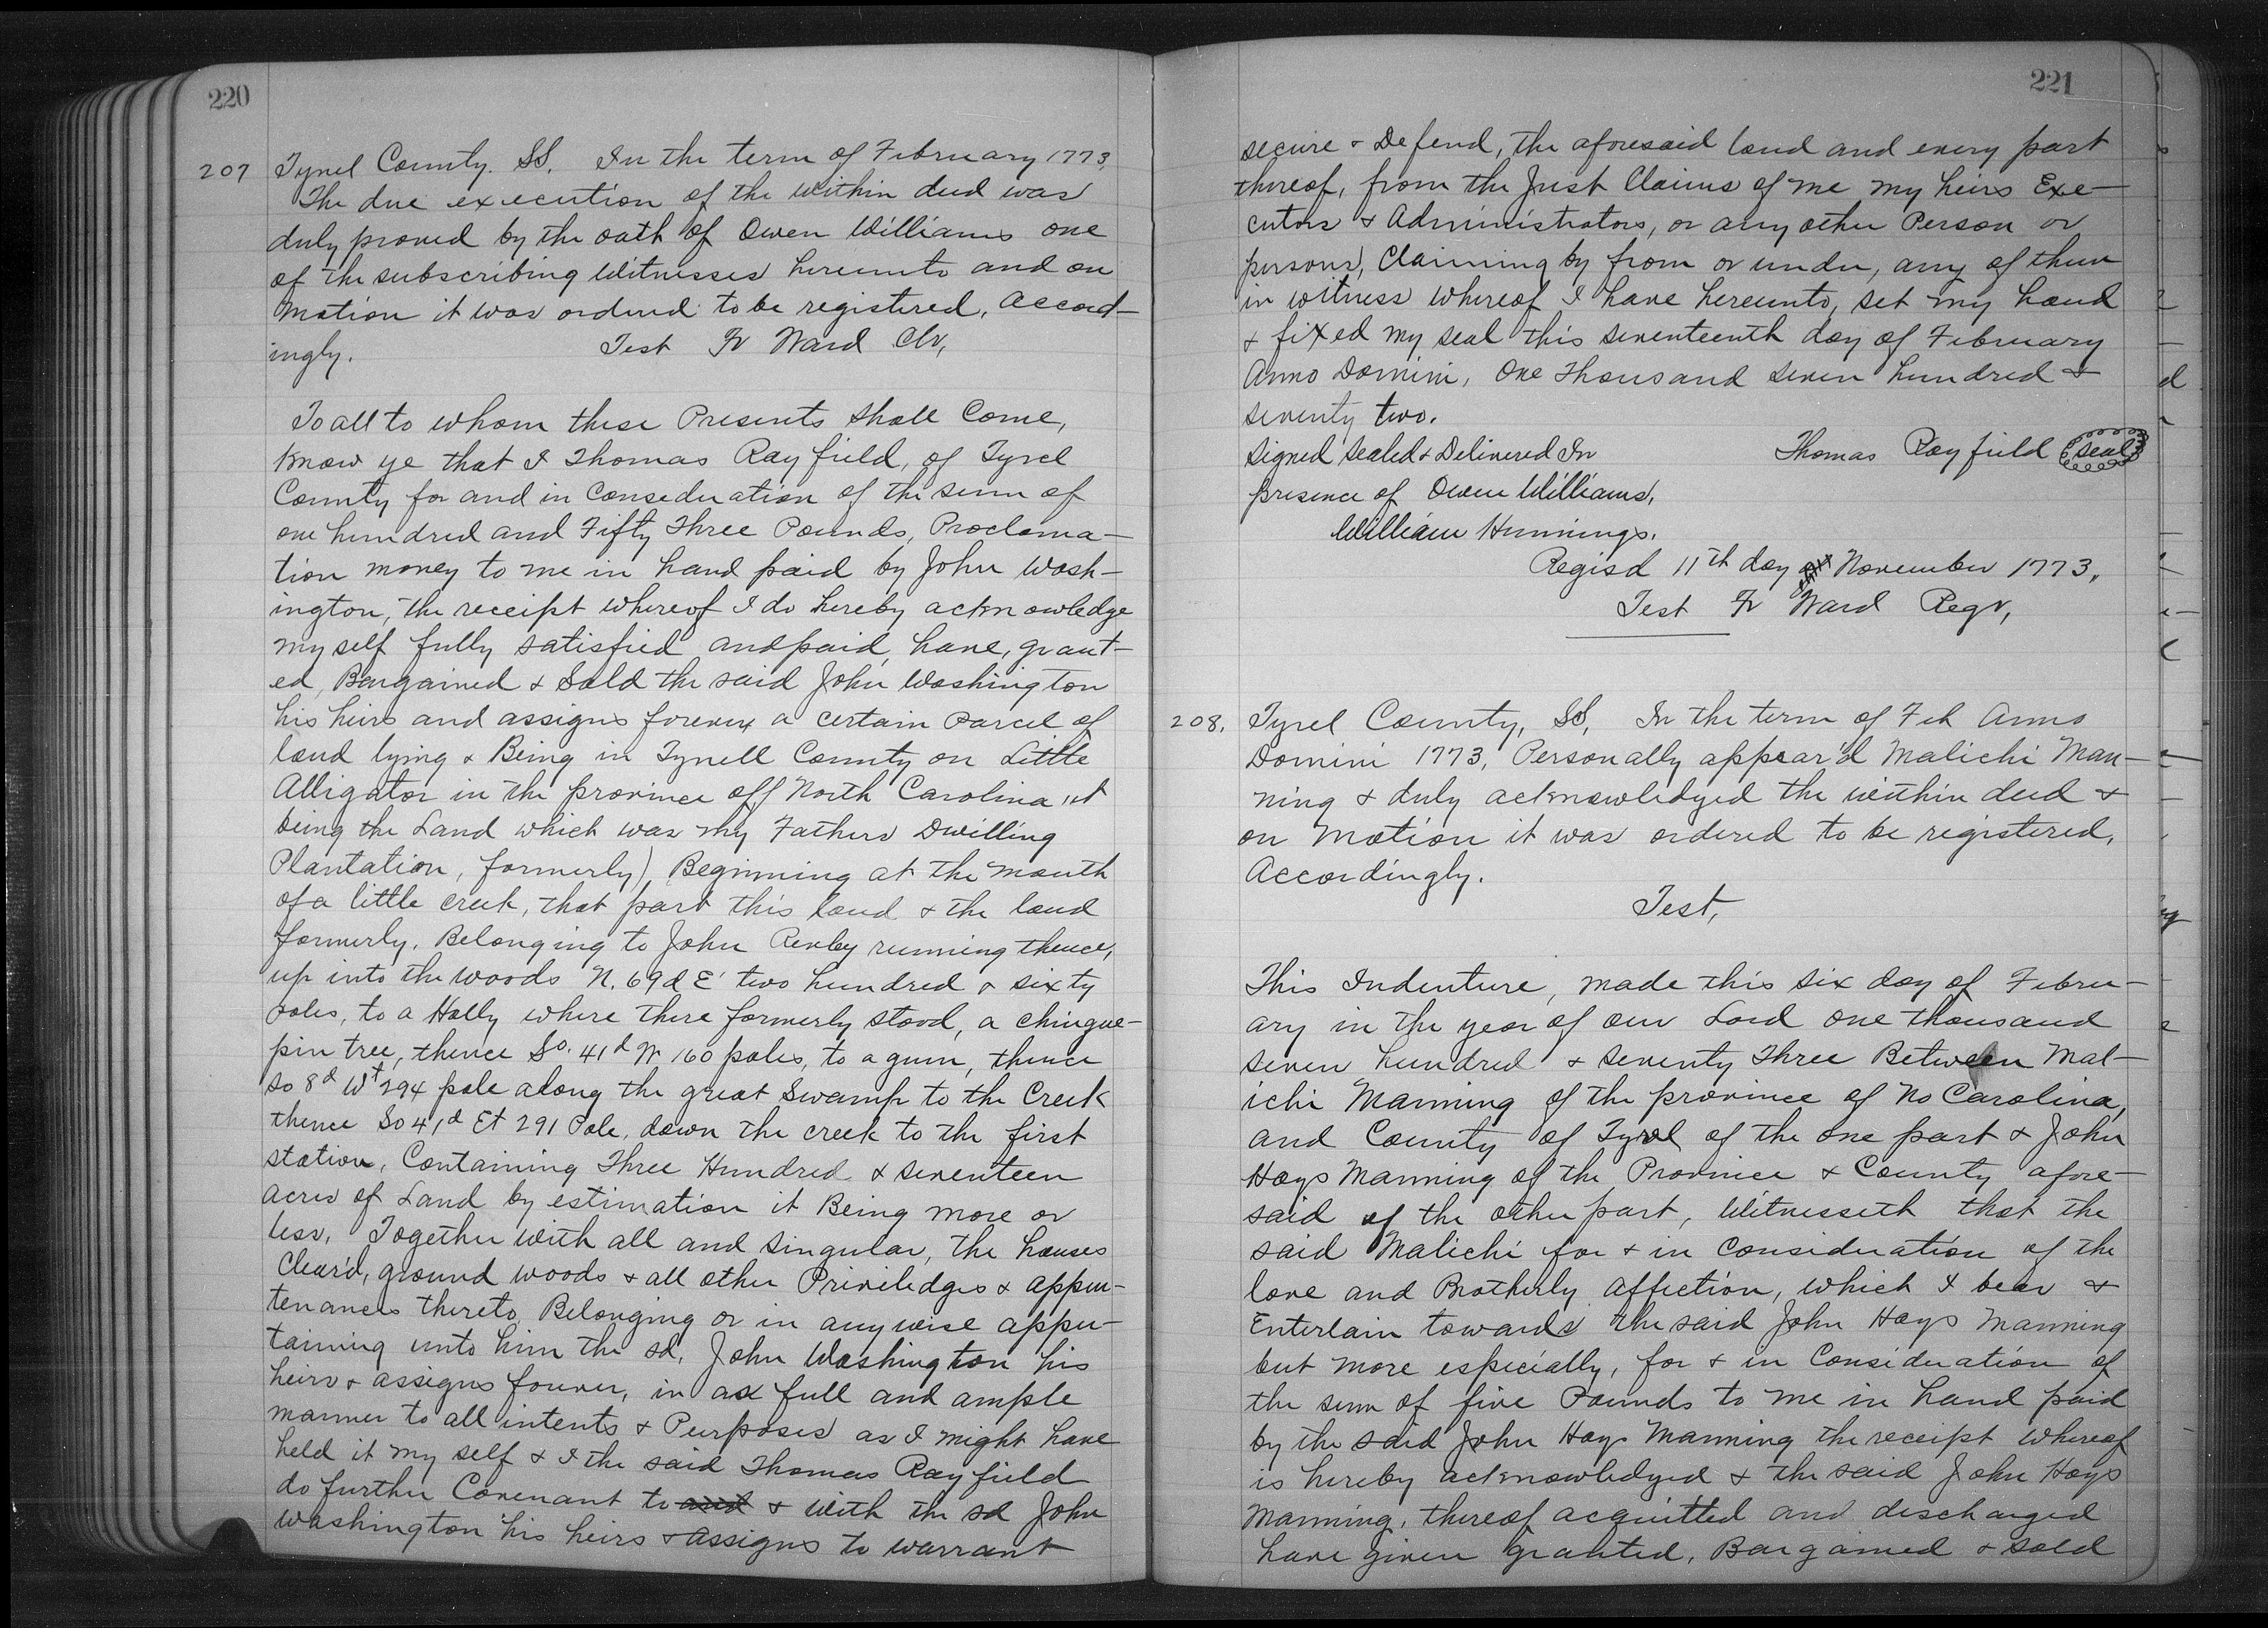 220
207 Tyrrel County. SS. In the term of February 1773,
The due execution of the within deed was
duly proved by the oath of Owen Williams one
of the subscribing Witnesses hereunto and on
motion it was ordered to be registered, accord-
ingly. Test Fr Ward Clr,
To all to whom these Presents shall Come,
Know ye that I Thomas Rayfield, of Tyrel
County for and in Consederation of the sum of
one hundred and Fifty Three Pounds, Proclama-
tion money to me in hand paid by John Wash-
ington, the receipt whereof I do hereby acknowledge
my self fully satisfied and paid, have, grant-
ed, Bargained & Sold the said John Washington
his heirs and assigns forever a certain Parcel of
land lying & Being in Tyrrell County on Little
Alligator in the province off North Carolina it
being the Land which was my Fathers Dwilling
Plantation, formerly) Beginning at the mouth
of a little creek, that part this land & the land
formerly, Belonging to John running thence,
up into the woods N. 69d E two hundred & sixty
poles, to a Holly where there formerly stood, a chinque-
pin tree, thence So. 41d W 160 poles, to a gum, thence
so 8d Wt 294 pole along the great Swamp to the Creek
thence So 41d Et 291 Pole, down the creek to the first
station, Containing Three Hundred & seventeen
acres of Land by estimation it Being more or
less, Together with all and singular, the houses
Clear'd, ground woods & all other Priviledges & appur-
tenances thereto Belonging or in any wise apper-
taining unto him the sd, John Washington his
heirs & assigns forever, in as full and ample
manner to all intents & Purposes as I might have
held it my self & I the said Thomas Rayfield
do further Covenant to and & with the sd John
Washington his heirs & Assigns to warrant
221
secure & Defend, the aforesaid land and every part
thereof, from the Just Claims of me my heirs Exe-
cutors & Administrators, or any other Person or
persons, Claiming by from or under, any of them
in witness whereof I have hereunto, set my hand
& fixed my seal this seventeenth day of February
Anno Domini, One Thousand seven hundred &
seventy two.
Signed sealed & Delivered In Thomas Rayfield seal
presence of Owen Williams,
William Hunnings.
Regisd 11th day of November 1773,
Test Fr Ward Regr,
208. Tyrel County, SS, In the term of Feb Anno
Domini 1773, Personally appear'd Malichi Man-
ning & duly acknowledged the within deed &
on Motion it was ordered to be registered,
Accordingly.
Test,
This Indenture, made this six day of Febru-
ary in the year of our Lord one thousand
seven hundred & seventy Three Between Mal-
ichi Manning of the province of No Carolina,
and County of Tyrel of the one part & John
Hays Manning of the Province & County afore-
said of the other part, Witnesseth that the
said Malichi for & in Consideration of the
love and Brotherly affection, which I bear &
Entertain towards the said John Hays Manning
but more especially, for & in Consideration of
the sum of five Pounds to me in hand paid
by the said John Hays Manning the receipt whereof
is hereby acknowledged & the said John Hays
Manning, thereof acquitted and discharged
have given granted, Bargained & sold